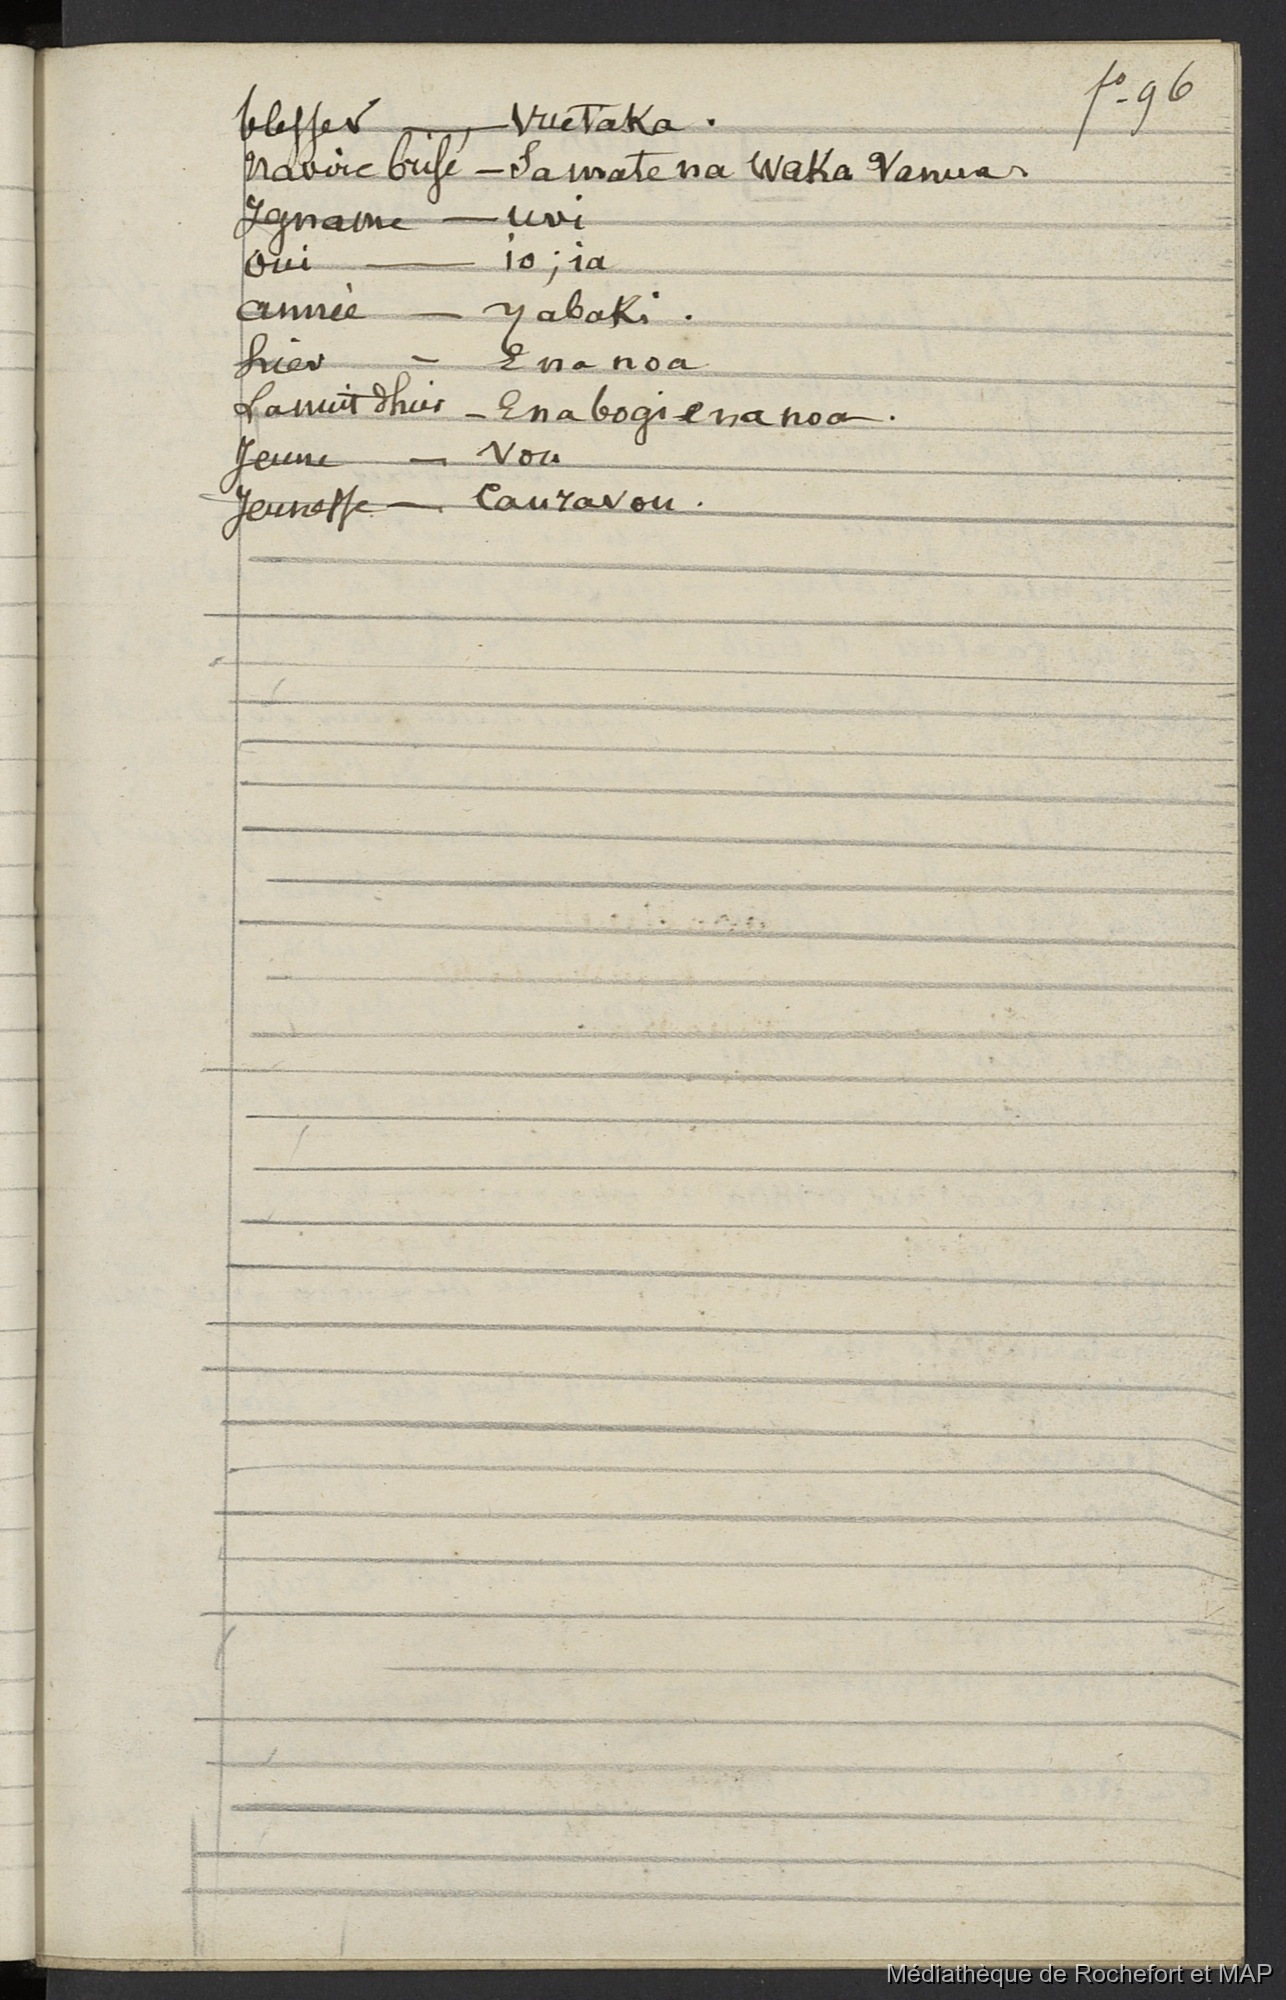 fº-96
blesser — Vuetaka.
navire brisé — Sa mate na Waka Vanua.
Igname — uvi
oui — io ; ia
année — yabaki.
hier — Ena noa
La nuit d'hier — Ena bogi ena noa.
Jeune — Vou
Jeunesse — Cauravou.
Médiathèque de Rochefort et MAP